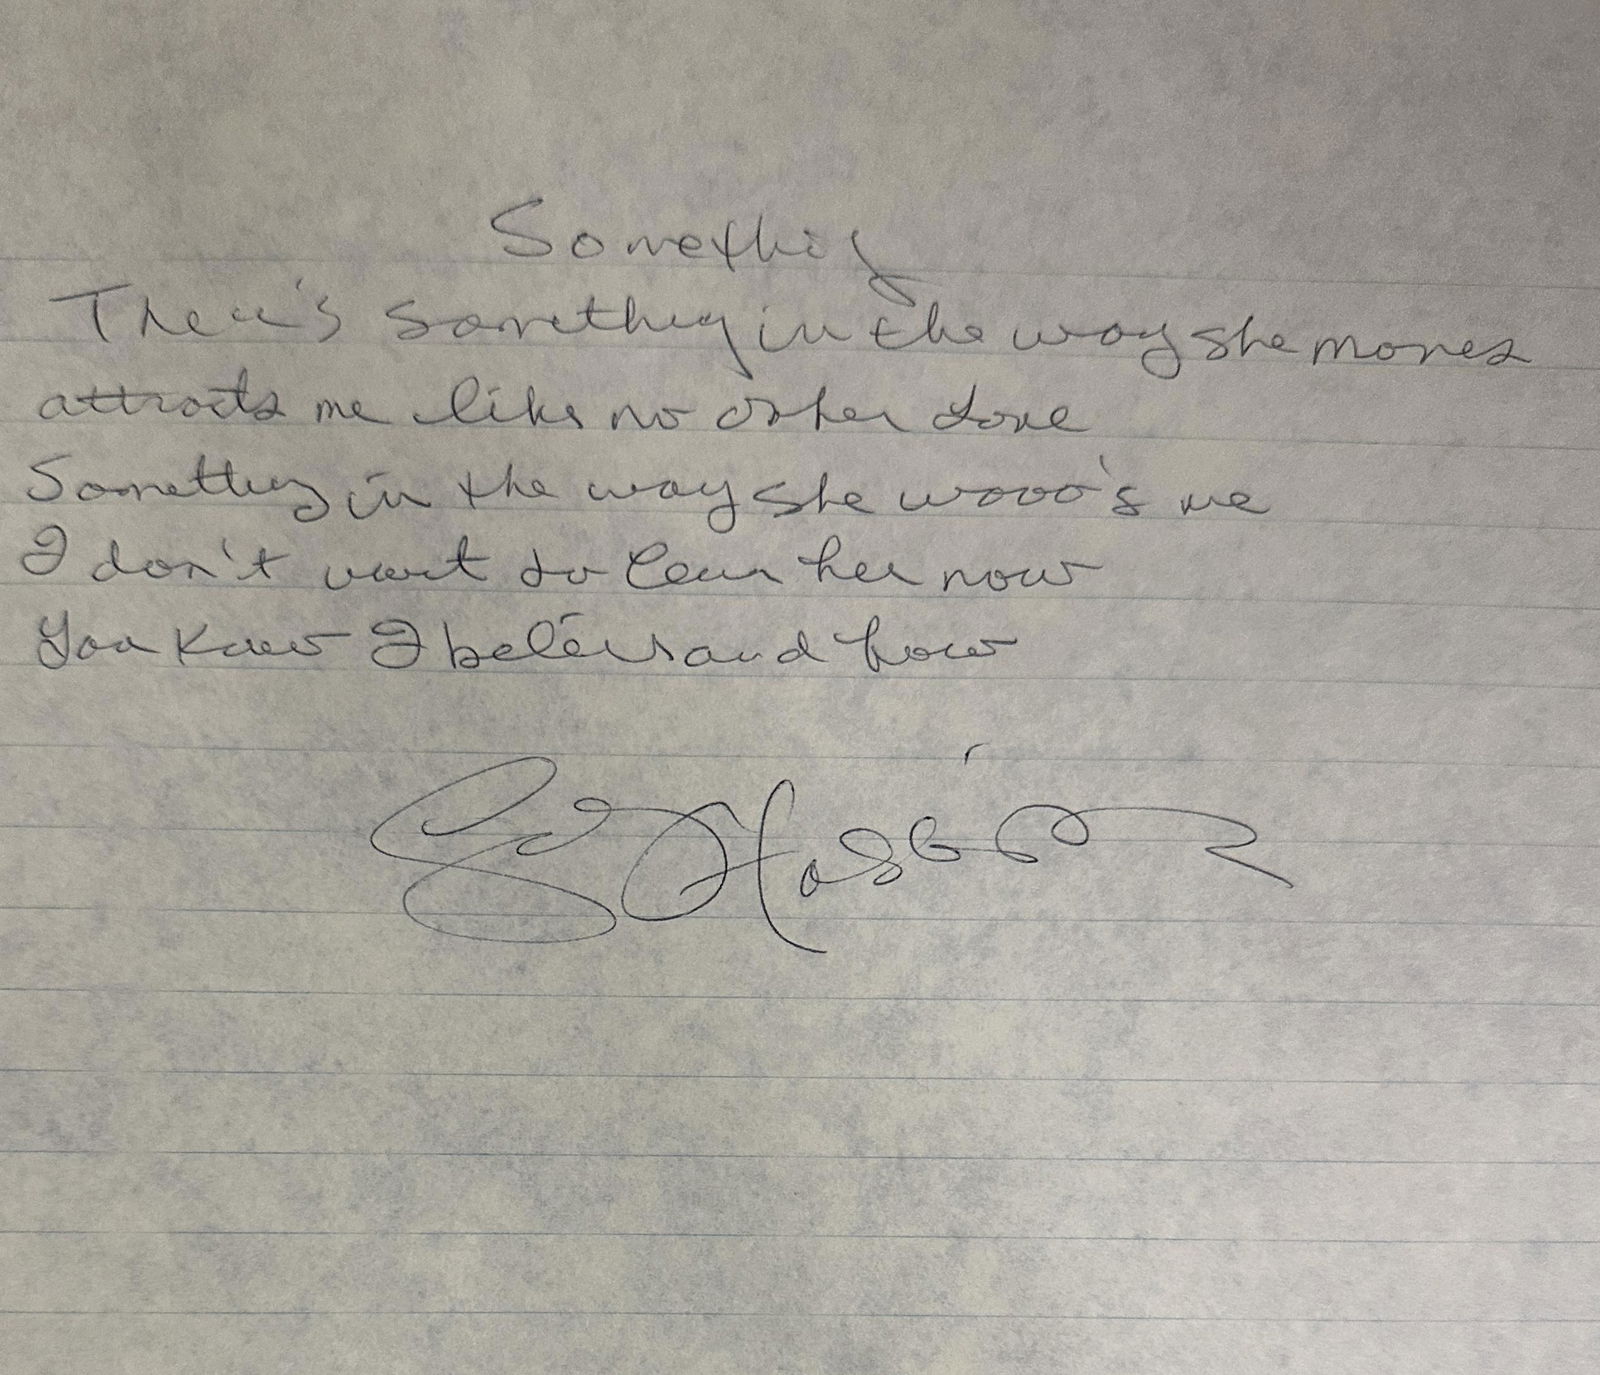 Something
There's something in the way she moves
attracts me like no other love
Something in the way she wooo's me
I don't want to leave her now
You know I believe and how